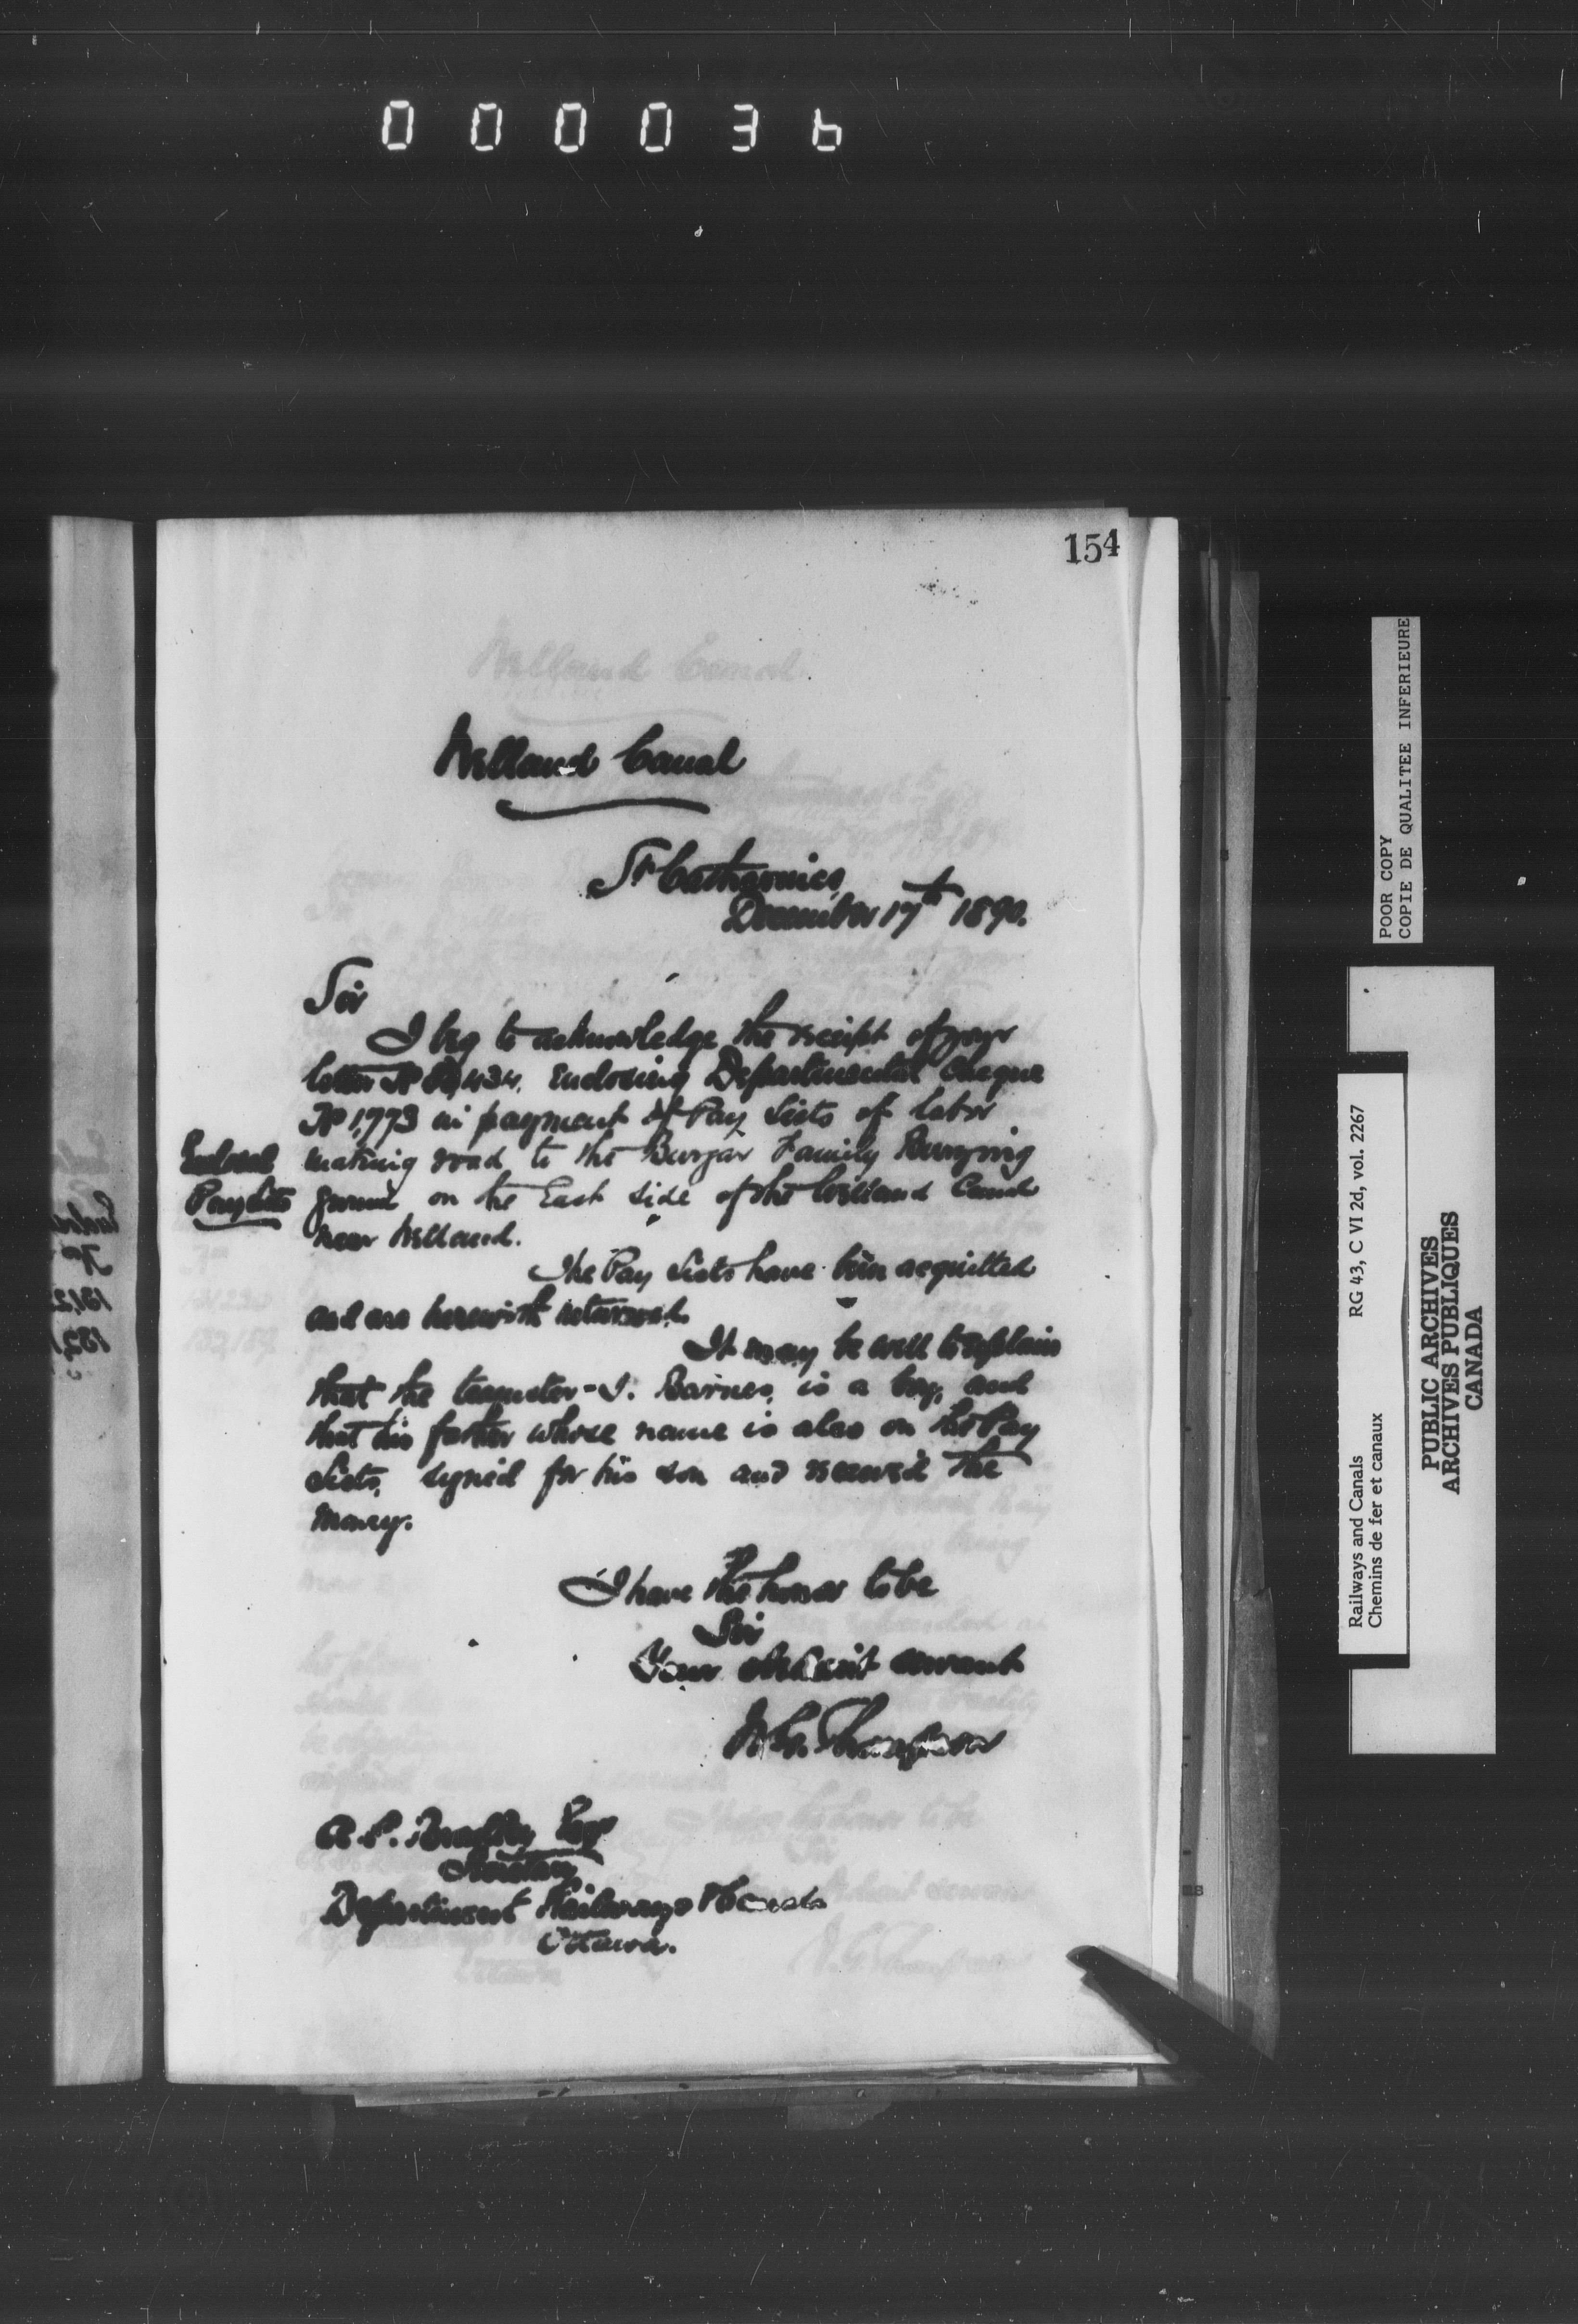 000036
154
Welland Canal
St Catharines
December 17th 1890.
Sir
I beg to acknowledge the receipt of your
letter No 434. Enclosing Departmental Cheque
No 1,773 in payment of Pay Lists of labor
making road to the Burgar Family Burying
ground on the East side of the Welland Canal
near Welland.
Enclosed
Paylists
The Pay Lists have been acquitted
and are herewith returned.
It may be well to explain
that the teamster - J. Barnes, is a boy, and
that his father whose name is also on the Pay
Lists, signed for his son and received the
money.
I have the honor to be
Sir
Your obedient servant
W. G. Thompson
A. P. Bradley Esqr
Secretary
Department Railways & Canals
Ottawa.
POOR COPY
COPIE DE QUALITEE INFERIEURE
Railways and Canals RG 43, C VI 2d, vol. 2267
Chemins de fer et canaux
PUBLIC ARCHIVES
ARCHIVES PUBLIQUES
CANADA